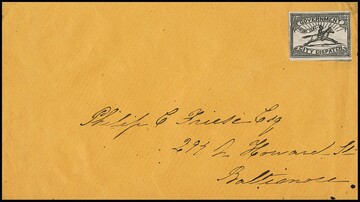 GOVERNMENT
CITY DISPATCH
Philip C Friese Esq
294 N Howard St
Baltimore